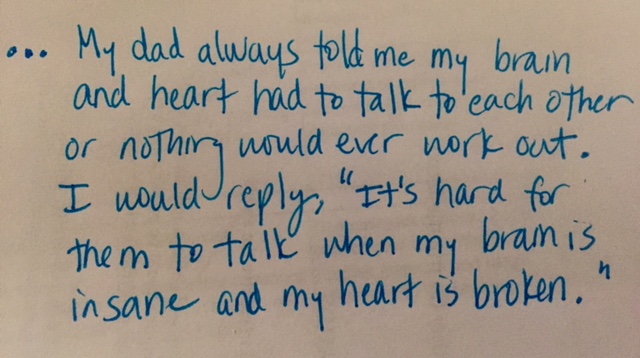 ... My dad always told me my brain
and heart had to talk to each other
or nothing would ever work out.
I would reply, "It's hard for
them to talk when my brain is
insane and my heart is broken."